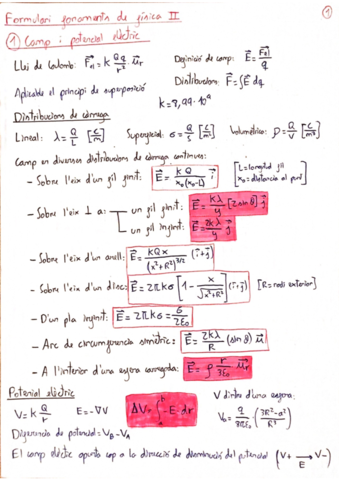 Formulari fonaments de física II
1
1) Camp i potencial elèctric
Llei de Coulomb: F⃗el = k Qq/r² · u⃗r Definició de camp: E⃗ = F⃗el/q
Distribucions: F⃗ = ∫E⃗ dq
Aplicable el principi de superposició k = 8,99·10⁹
Distribucions de càrrega
Lineal: λ = Q/L [C/m] Superficial: σ = Q/S [C/m²] Volumètrica: ρ = Q/V [C/m³]
Camp en diverses distribucions de càrrega contínues:
- Sobre l'eix d'un fil finit: E⃗ = kQ/x₀(x₀-L) i⃗ [L = longitud fil
x₀ = distancia al punt]
- Sobre l'eix ⊥ a: un fil finit: E⃗ = kλ/y [2sinθ] j⃗
un fil infinit: E⃗ = 2kλ/y j⃗
- Sobre l'eix d'un anell: E⃗ = kQx/(x²+R²)^3/2 (i⃗+j⃗)
- Sobre l'eix d'un disc: E⃗ = 2πkσ [1 - x/√(x²+R²)] (i⃗+j⃗) [R = radi exterior]
- D'un pla infinit: E⃗ = 2πkσ = σ/2ε₀
- Arc de circumferencia simètric: E⃗ = 2kλ/R (sinθ) u⃗
- A l'interior d'una esfera carregada: E⃗ = ρ r/3ε₀ u⃗r
Potencial elèctric V dintre d'una esfera:
V = k Q/r E = -∇V ΔV = ∫ -E⃗ · dr V₀ = q/8πε₀ · (3R²-a²/R³)
Diferencia de potencial = VB - VA
El camp elèctric apunta cap a la direcció de disminució del potencial (V+ → V-)
E